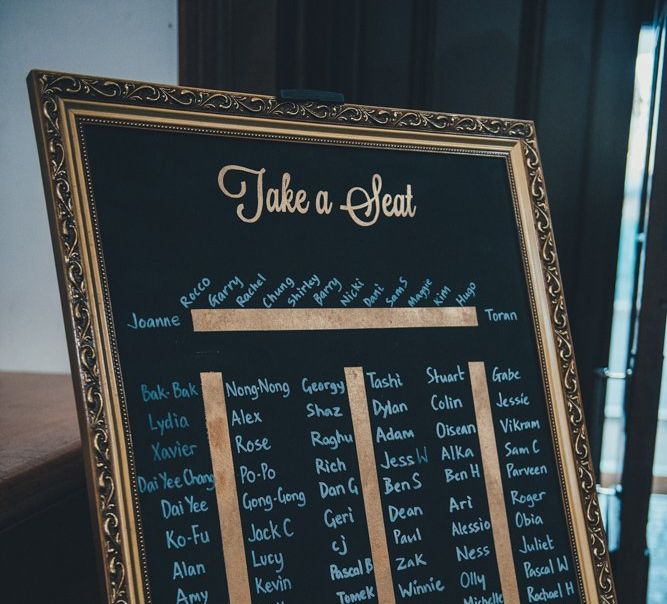 Take a Seat
Rocco Garry Rachel Chung Shirley Barry Nicki Dani Sam S Maggie Kim Hugo
Joanne Toran
Bak-Bak Nong-Nong Georgy Tashi Stuart Gabe
Lydia Alex Shaz Dylan Colin Jessie
Xavier Rose Raghu Adam Olsean Vikram
Dai Yee Chang Po-Po Rich Jess W Alka Sam C
Dai Yee Gong-Gong Dan G Ben S Ben H Parveen
Ko-Fu Jack C Geri Dean Ari Roger
Alan Lucy CJ Paul Alessio Obia
Amy Kevin Pascal B Zak Ness Juliet
Tomek Winnie Olly Pascal W
Michelle Rachael H